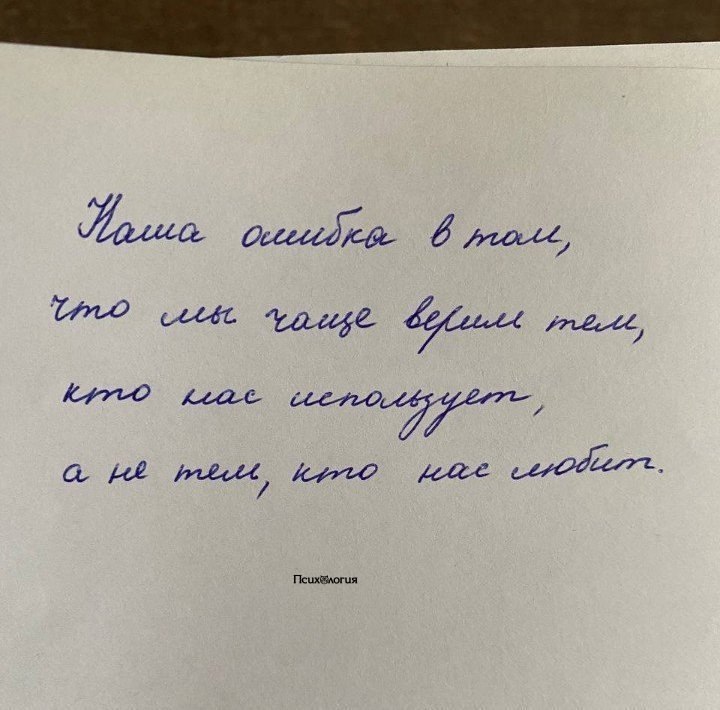 Наша ошибка в том,
что мы чаще верим тем,
кто нас использует,
а не тем, кто нас любит.
Психология